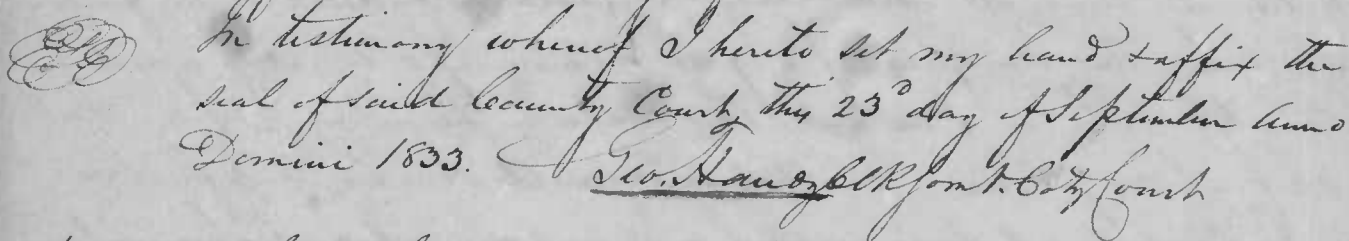 In testimony whereof I hereto set my hand & affix the
seal of said County Court, this 23d day of September Anno
Domini 1833. Geo. Handy Clk Somt. Coty Court